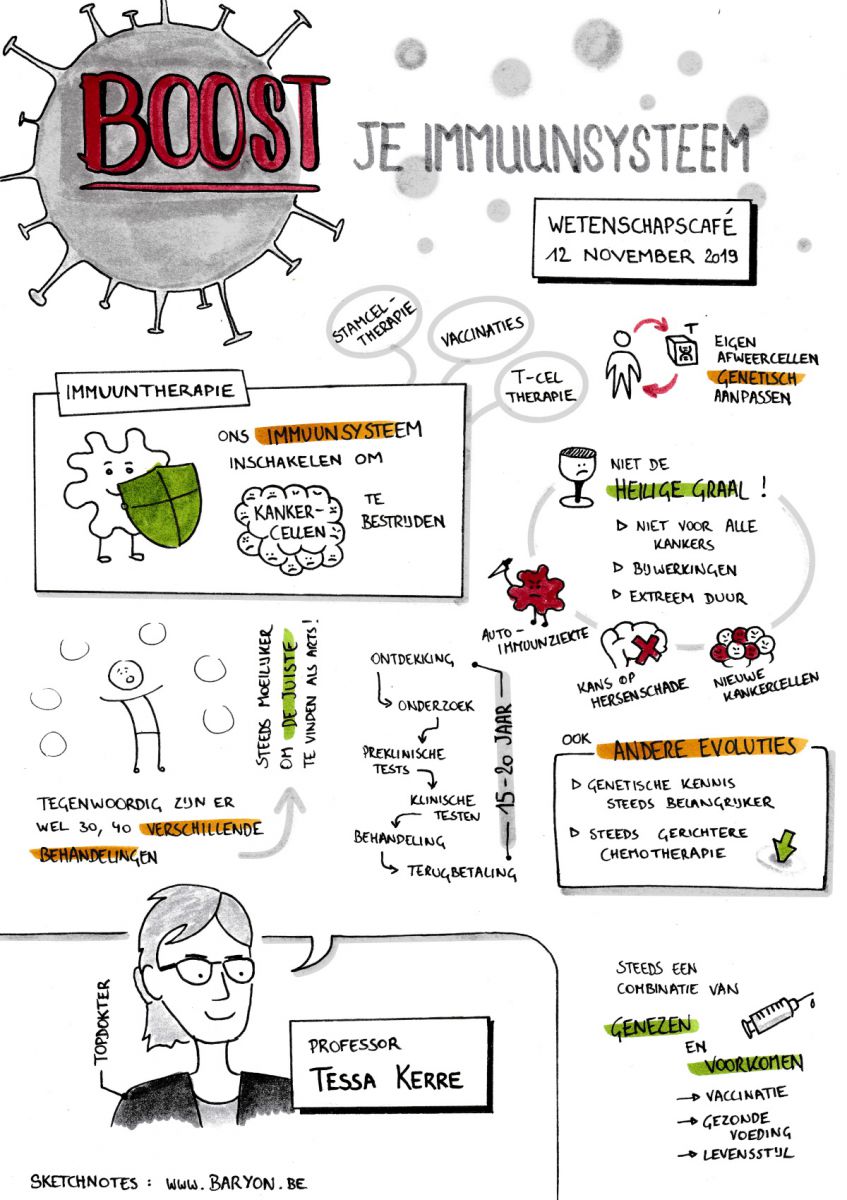 BOOST
JE IMMUUNSYSTEEM
WETENSCHAPSCAFÉ
12 NOVEMBER 2019
STAMCEL-
THERAPIE
VACCINATIES
T-CEL
THERAPIE
T
EIGEN
AFWEERCELLEN
GENETISCH
AANPASSEN
IMMUUNTHERAPIE
ONS IMMUUNSYSTEEM
INSCHAKELEN OM
KANKER-
CELLEN
TE
BESTRIJDEN
NIET DE
HEILIGE GRAAL!
▷ NIET VOOR ALLE
KANKERS
▷ BIJWERKINGEN
▷ EXTREEM DUUR
AUTO-
IMMUUNZIEKTE
KANS OP
HERSENSCHADE
NIEUWE
KANKERCELLEN
TEGENWOORDIG ZIJN ER
WEL 30, 40 VERSCHILLENDE
BEHANDELINGEN
STEEDS MOEILIJKER
OM DE JUISTE
TE VINDEN ALS ARTS!
ONTDEKKING
ONDERZOEK
PREKLINISCHE
TESTS
KLINISCHE
TESTEN
BEHANDELING
TERUGBETALING
15-20 JAAR
OOK ANDERE EVOLUTIES
▷ GENETISCHE KENNIS
STEEDS BELANGRIJKER
▷ STEEDS GERICHTERE
CHEMOTHERAPIE
TOPDOKTER
PROFESSOR
TESSA KERRE
STEEDS EEN
COMBINATIE VAN
GENEZEN
EN
VOORKOMEN
→ VACCINATIE
→ GEZONDE
VOEDING
→ LEVENSSTIJL
SKETCHNOTES: WWW.BARYON.BE